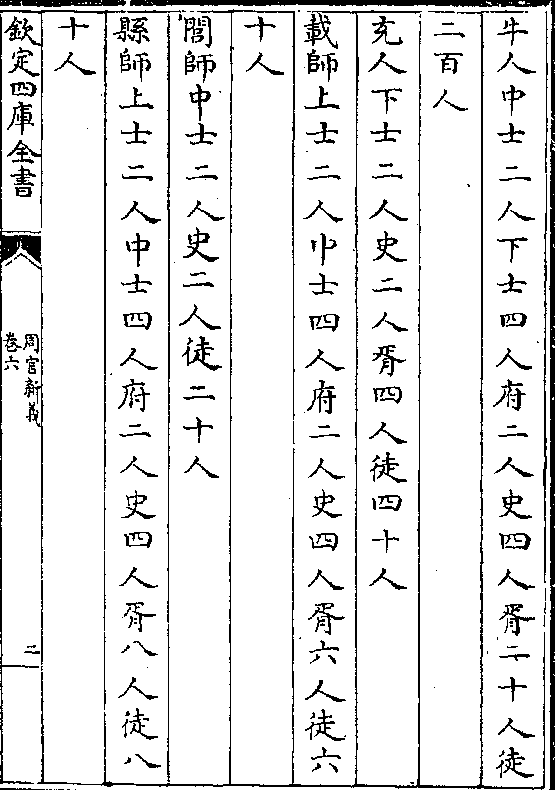 牛人中士二人下士四人府二人史四人胥二十人徒
二百人
充人下士二人史二人胥四人徒四十人
載師上士二人中士四人府二人史四人胥六人徒六
十人
閭師中士二人史二人徒二十人
縣師上士二人中士四人府二人史四人胥八人徒八
十人
欽定四庫全書
周官新義
卷六
二